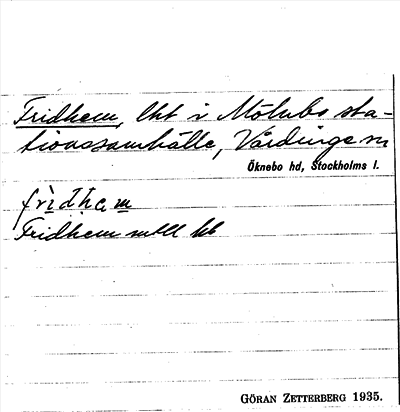 Fridhem, lht i Mölnbo sta-
tionssamhälle, Vårdinge sn
Öknebo hd, Stockholms l.
frìdhem
Fridhem
GÖRAN ZETTERBERG 1935.